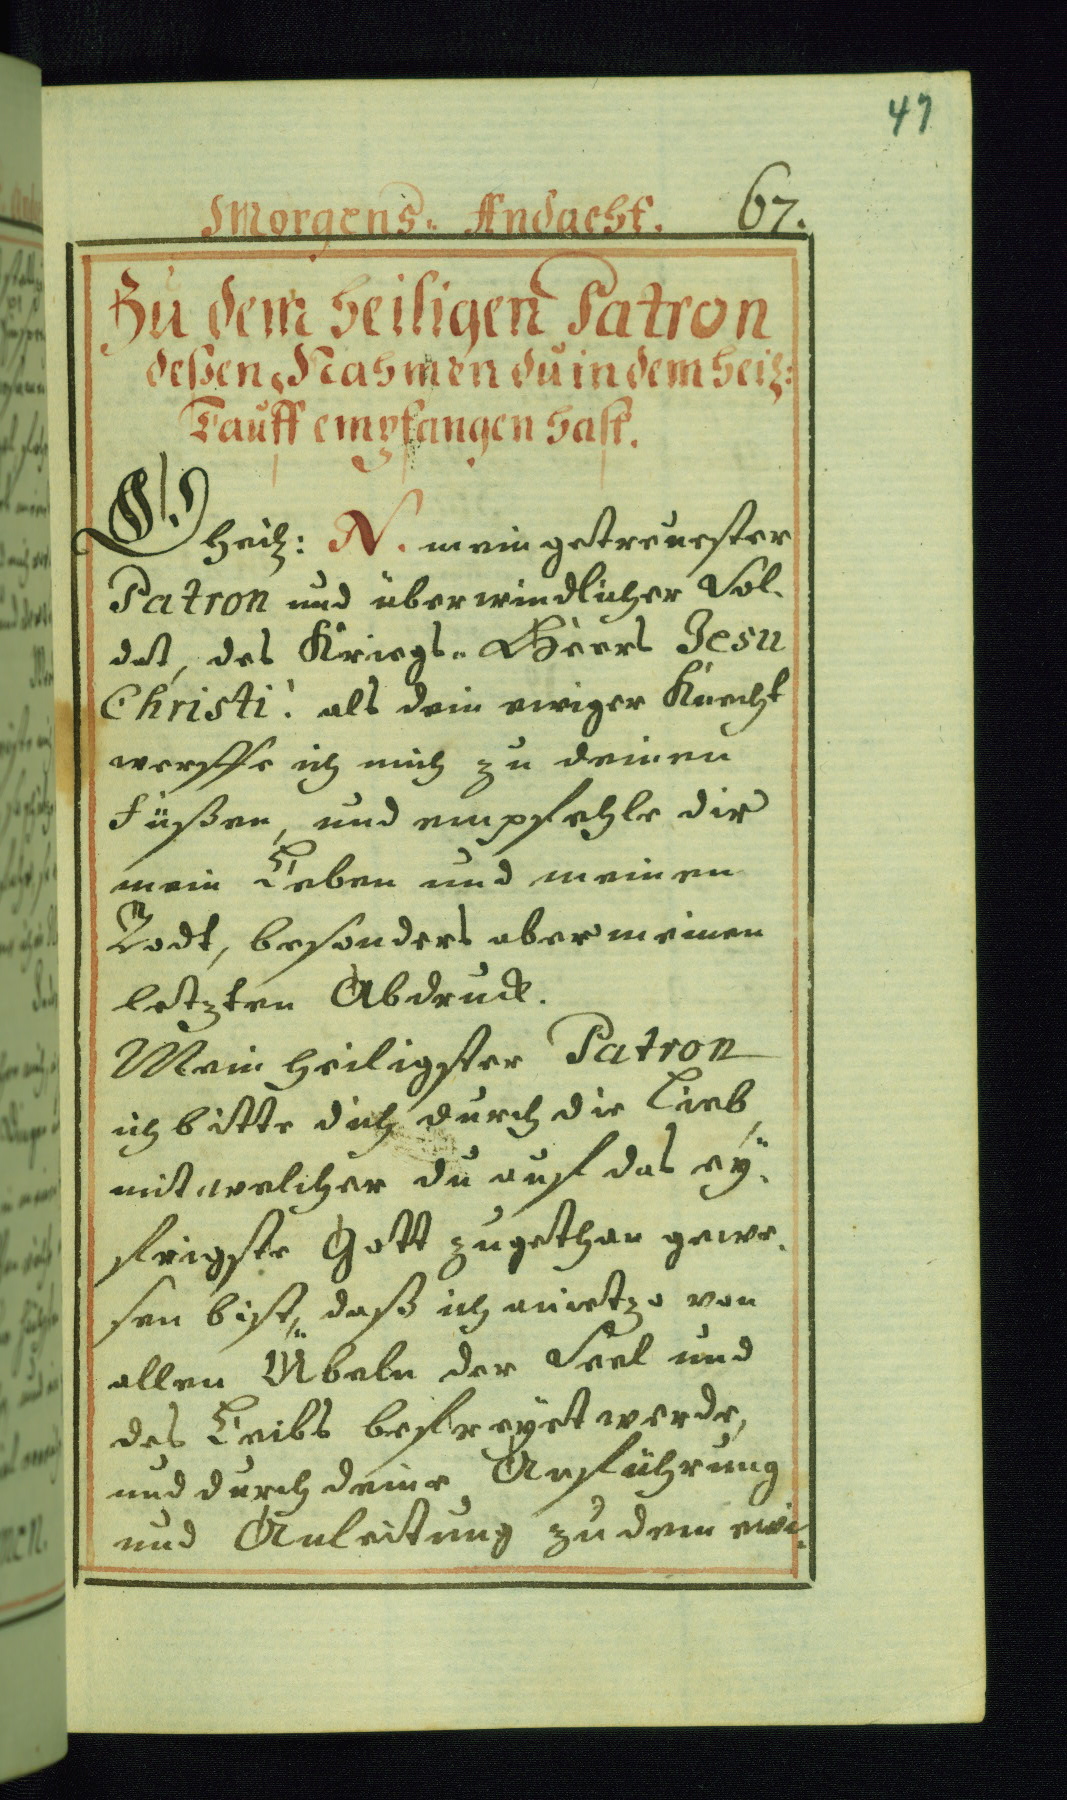 47
Morgens- Andacht. 67.
Zu dem heiligen Patron
deßen Nahmen du in dem heil:
Tauff empfangen hast.
O heil: N. mein getreuester
Patron und überwindlicher Sol-
dat, des Kriegs- Heers Jesu
Christi! als dein ewiger Knecht
werffe ich mich zu deinen
Füßen, und empfehle dir
mein Leben und meinen
Todt, besonders aber meinen
letzten Abdruck.
Mein heiligster Patron
ich bitte dich durch die Lieb,
mit welcher du auf das eÿ-
frigste Gott zugethan gewe-
sen bist, daß ich anietzo von
allen Übeln der Seel und
des Leibs befreÿet werde,
und durch deine Anführung
und Anleitung zu dem ewi-